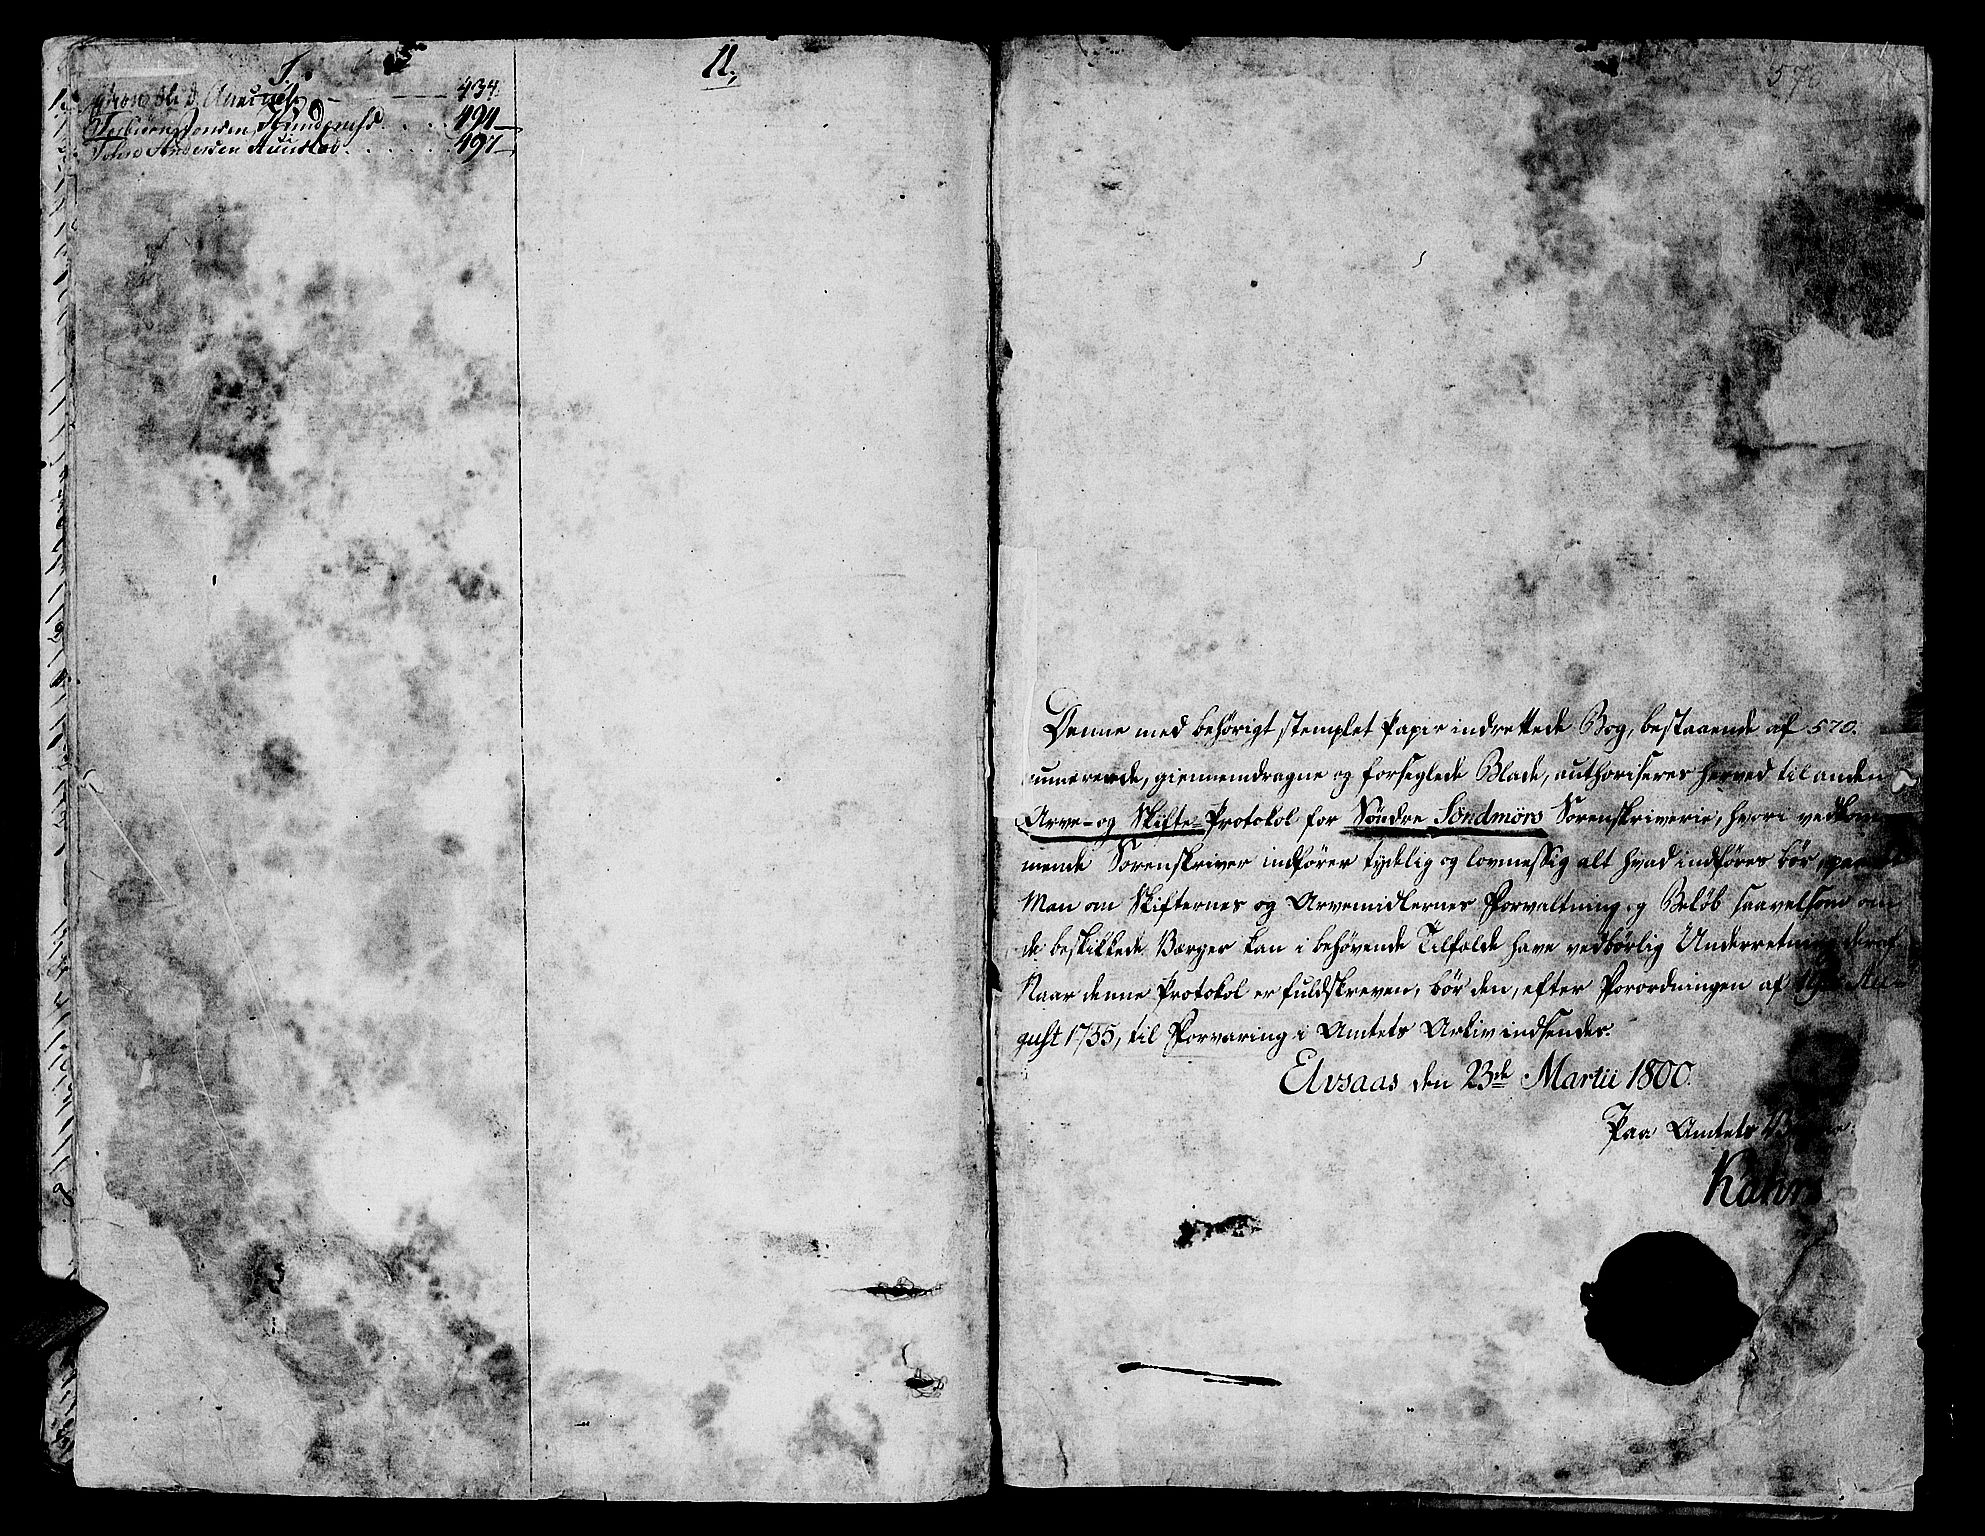 T.
434.
494
Andersen 497
U,
570
Denne med behörigt stemplet Papir indrettede Bog, bestaaende af 570.
numererede, giennemdragne og forseglede Blade, authoriseres herved til anden
Arve- og Skifte-Protokol for Söndre Söndmörs Sorenskriverie, hvori vedkom-
mende Sorenskriver indförer tydelig og lovmessig alt hvad indföres bör,
Man om Skifternes og Arvemidlernes Forvaltning og Belöb saavelsom om
de beskikkede Værger kan i behövende Tilfælde have vedbörlig Underretning deraf.
Naar denne Protokol er fuldskreven, bör den, efter Forordningen af Au-
gust 1735, til Forvaring i Amtets Arkiv indsendes.
Elvsaas den 23de Martii 1800.
Paa Amtets
Kahrs